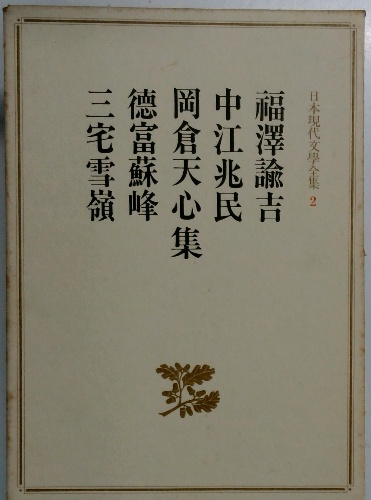 日本現代文學全集 2
福澤諭吉
中江兆民
岡倉天心集
德富蘇峰
三宅雪嶺